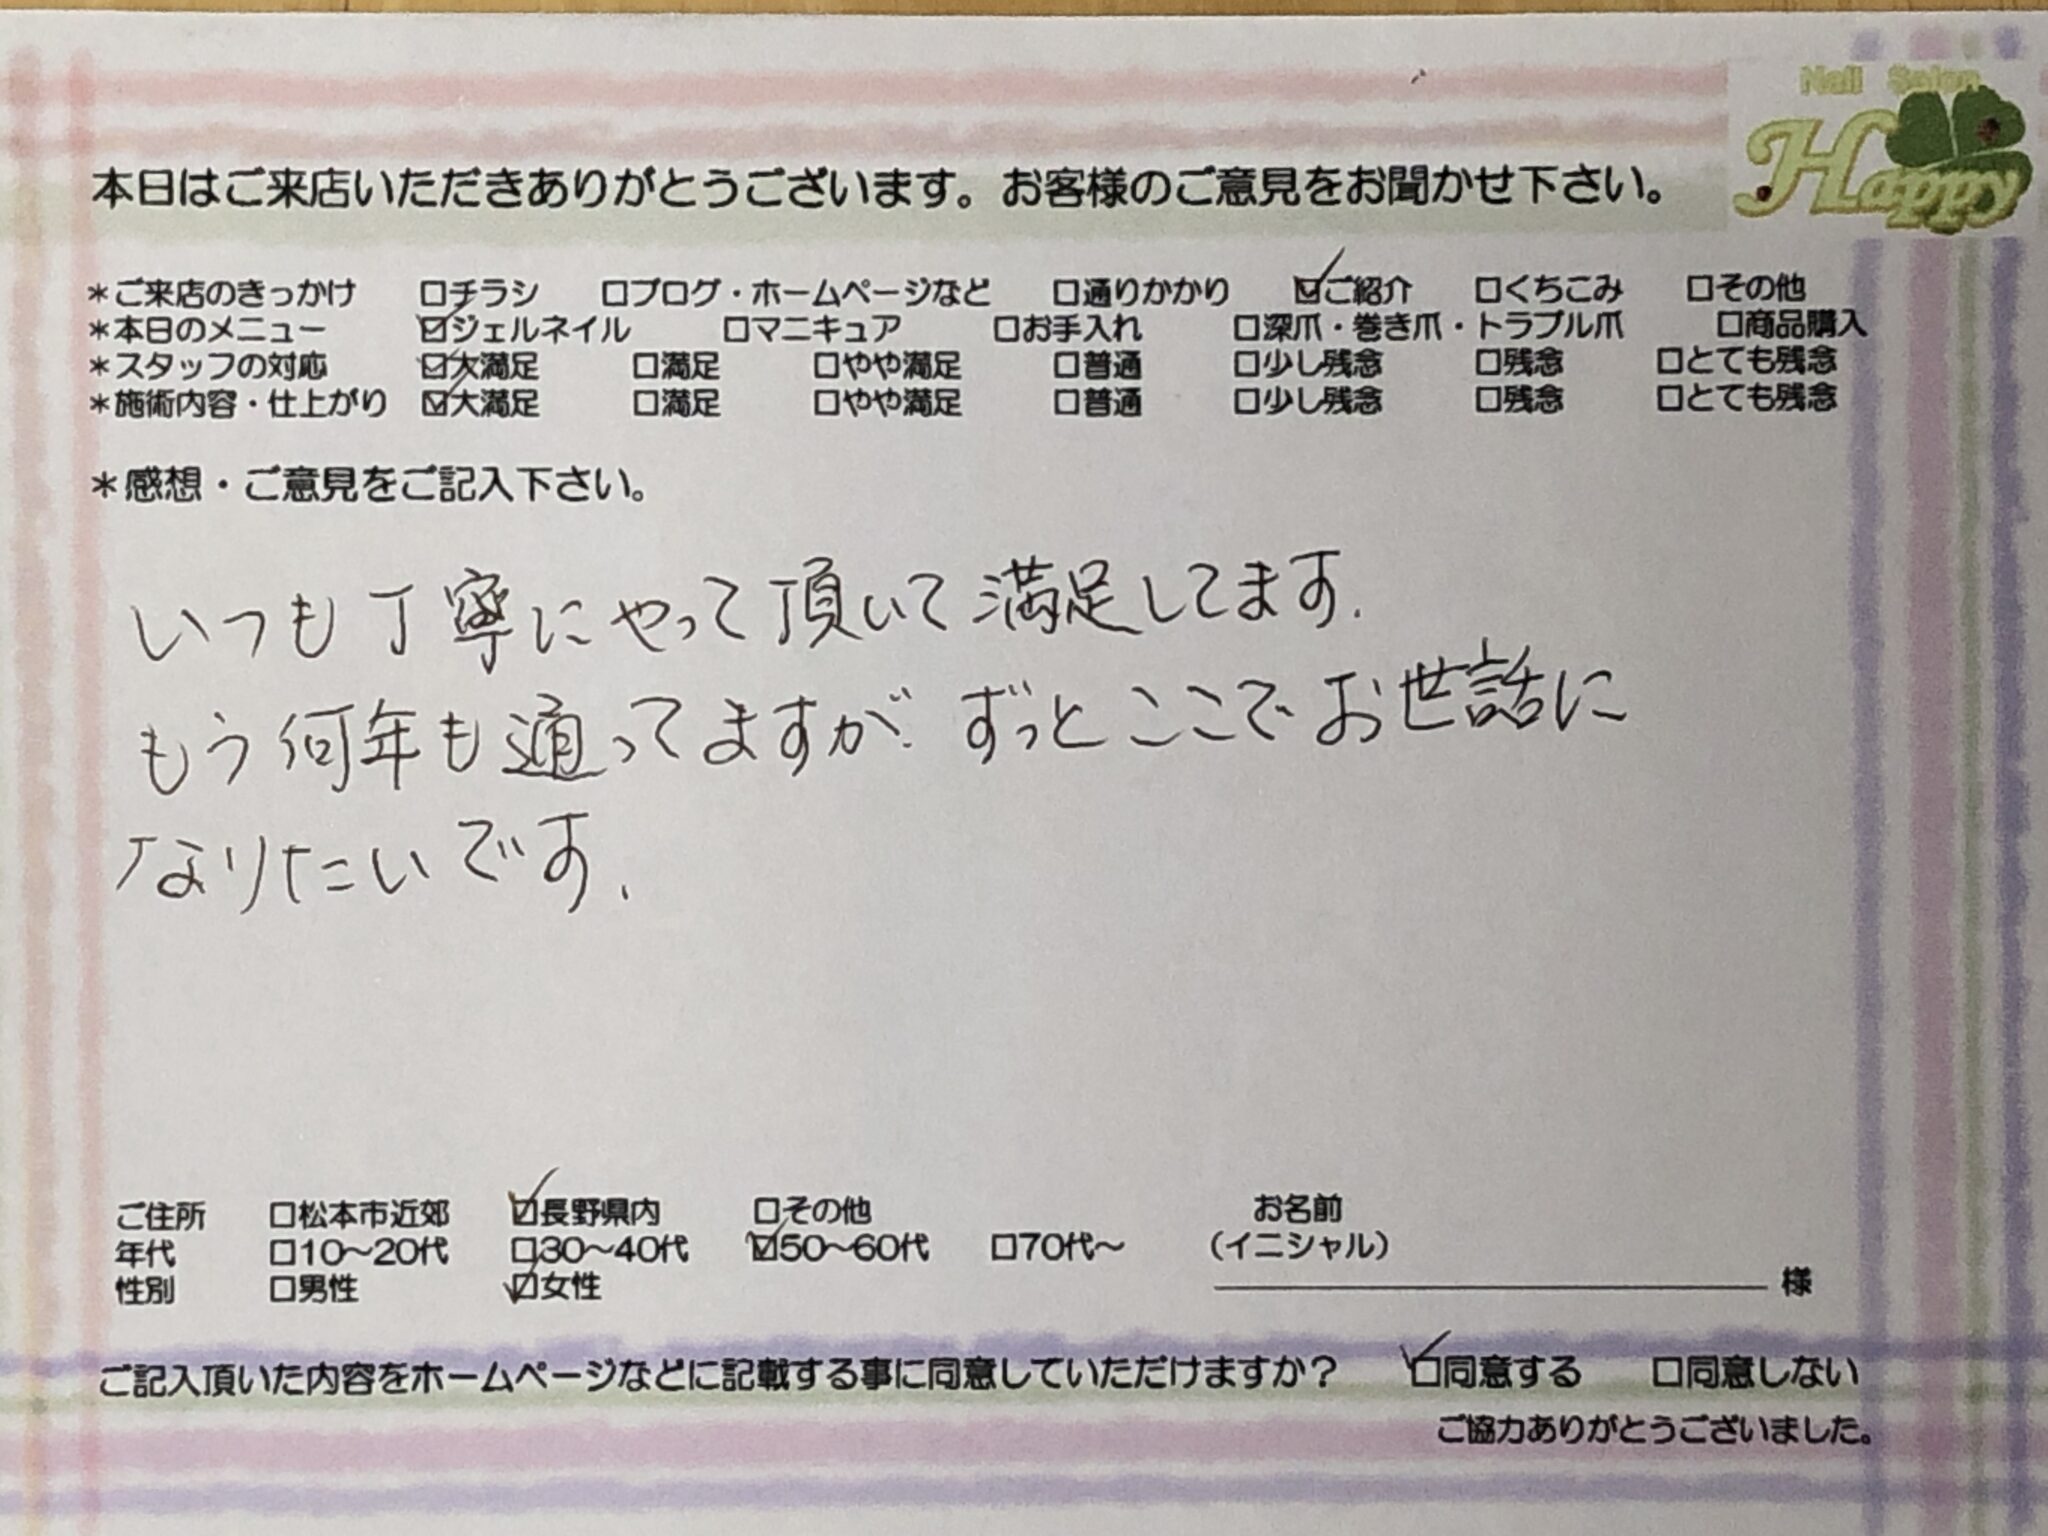 Nail Salon
Happy
本日はご来店いただきありがとうございます。お客様のご意見をお聞かせ下さい。
*ご来店のきっかけ □チラシ □ブログ・ホームページなど □通りかかり ☑ご紹介 □くちこみ □その他
*本日のメニュー ☑ジェルネイル □マニキュア □お手入れ □深爪・巻き爪・トラブル爪 □商品購入
*スタッフの対応 ☑大満足 □満足 □やや満足 □普通 □少し残念 □残念 □とても残念
*施術内容・仕上がり ☑大満足 □満足 □やや満足 □普通 □少し残念 □残念 □とても残念
*感想・ご意見をご記入下さい。
いつも丁寧にやって頂いて満足してます.
もう何年も通ってますが.ずっとここでお世話に
なりたいです.
ご住所 □松本市近郊 ☑長野県内 □その他 お名前
年代 □10～20代 □30～40代 ☑50～60代 □70代～ (イニシャル)
性別 □男性 ☑女性 様
ご記入頂いた内容をホームページなどに記載する事に同意していただけますか? ☑同意する □同意しない
ご協力ありがとうございました。